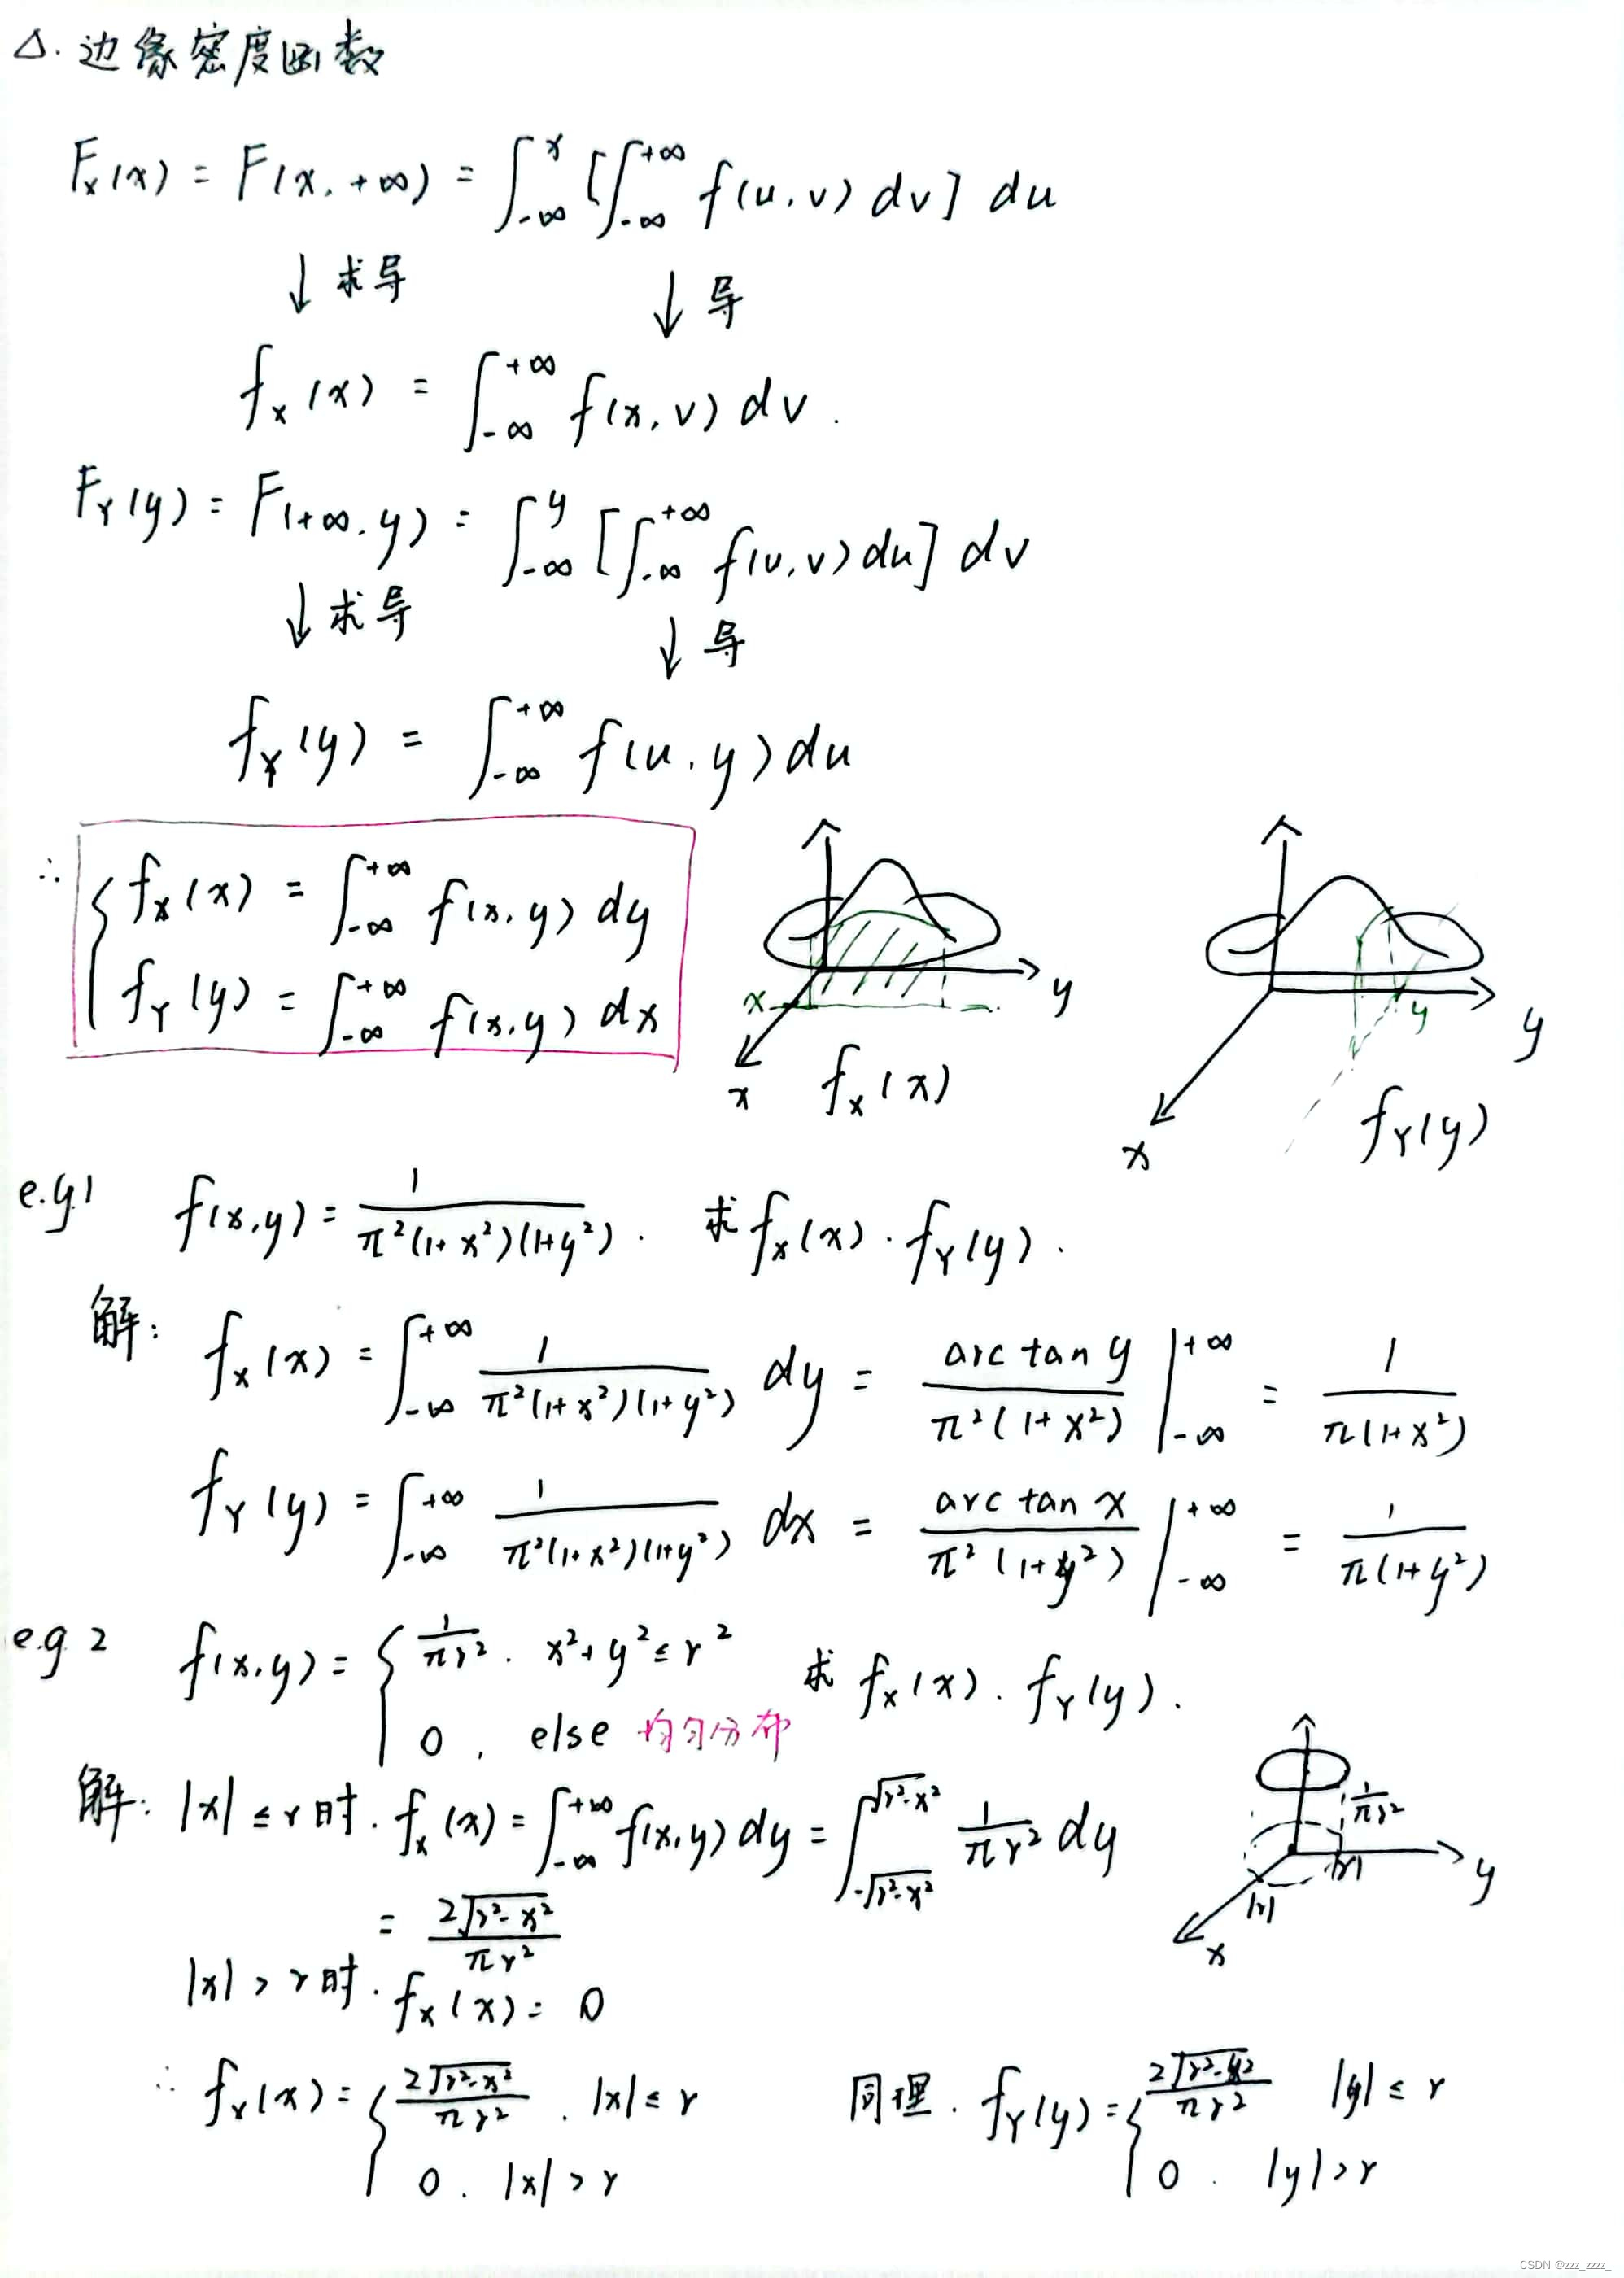 △. 边缘密度函数
F_X(x) = F(x, +∞) = ∫_{-∞}^{x} [∫_{-∞}^{+∞} f(u, v) dv] du
↓ 求导 ↓ 导
f_X(x) = ∫_{-∞}^{+∞} f(x, v) dv.
F_Y(y) = F(+∞, y) = ∫_{-∞}^{y} [∫_{-∞}^{+∞} f(u, v) du] dv
↓ 求导 ↓ 导
f_Y(y) = ∫_{-∞}^{+∞} f(u, y) du
∴ { f_X(x) = ∫_{-∞}^{+∞} f(x, y) dy
f_Y(y) = ∫_{-∞}^{+∞} f(x, y) dx
x y
x f_X(x)
y y
x f_Y(y)
e.g.1 f(x, y) = 1/(π²(1+x²)(1+y²)). 求 f_X(x), f_Y(y).
解: f_X(x) = ∫_{-∞}^{+∞} 1/(π²(1+x²)(1+y²)) dy = arctan y/(π²(1+x²)) |_{-∞}^{+∞} = 1/(π(1+x²))
f_Y(y) = ∫_{-∞}^{+∞} 1/(π²(1+x²)(1+y²)) dx = arctan x/(π²(1+y²)) |_{-∞}^{+∞} = 1/(π(1+y²))
e.g.2 f(x, y) = { 1/(πr²), x²+y² ≤ r² 求 f_X(x), f_Y(y).
0, else 均匀分布
解: |x| ≤ r 时, f_X(x) = ∫_{-∞}^{+∞} f(x, y) dy = ∫_{-√(r²-x²)}^{√(r²-x²)} 1/(πr²) dy
1/(πr²)
|r| y
|r|
x
= 2√(r²-x²)/(πr²)
|x| > r 时, f_X(x) = 0
∴ f_X(x) = { 2√(r²-x²)/(πr²), |x| ≤ r 同理, f_Y(y) = { 2√(r²-y²)/(πr²) |y| ≤ r
0, |x| > r 0, |y| > r
CSDN @zzz_zzzz_